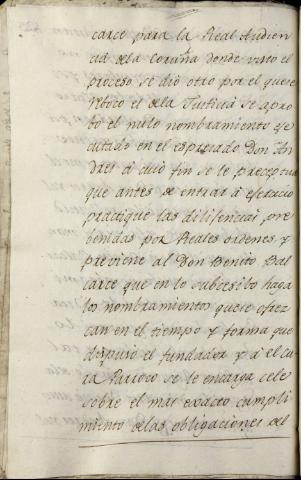 carce para la Real Audien
cia de la Coruña donde visto el
proceso se dió otro por el que se
reboco el de la Justicia se apro
bó el nuebo nombramiento ege
cutado en el espresado Don An
dres á cuio fin se le preceptua
que antes de entrar á
practique las diligencias pre
benidas por Reales ordenes, y
previene al Don Benito Bal
carce que en lo subcesibo haga
los nombramientos que se ofrez
can en el tiempo y forma que
dispuso el fundador y á el cu
ra Parroco se le encarga cele
sobre el mas exacto cumpli
miento de las obligaciones del